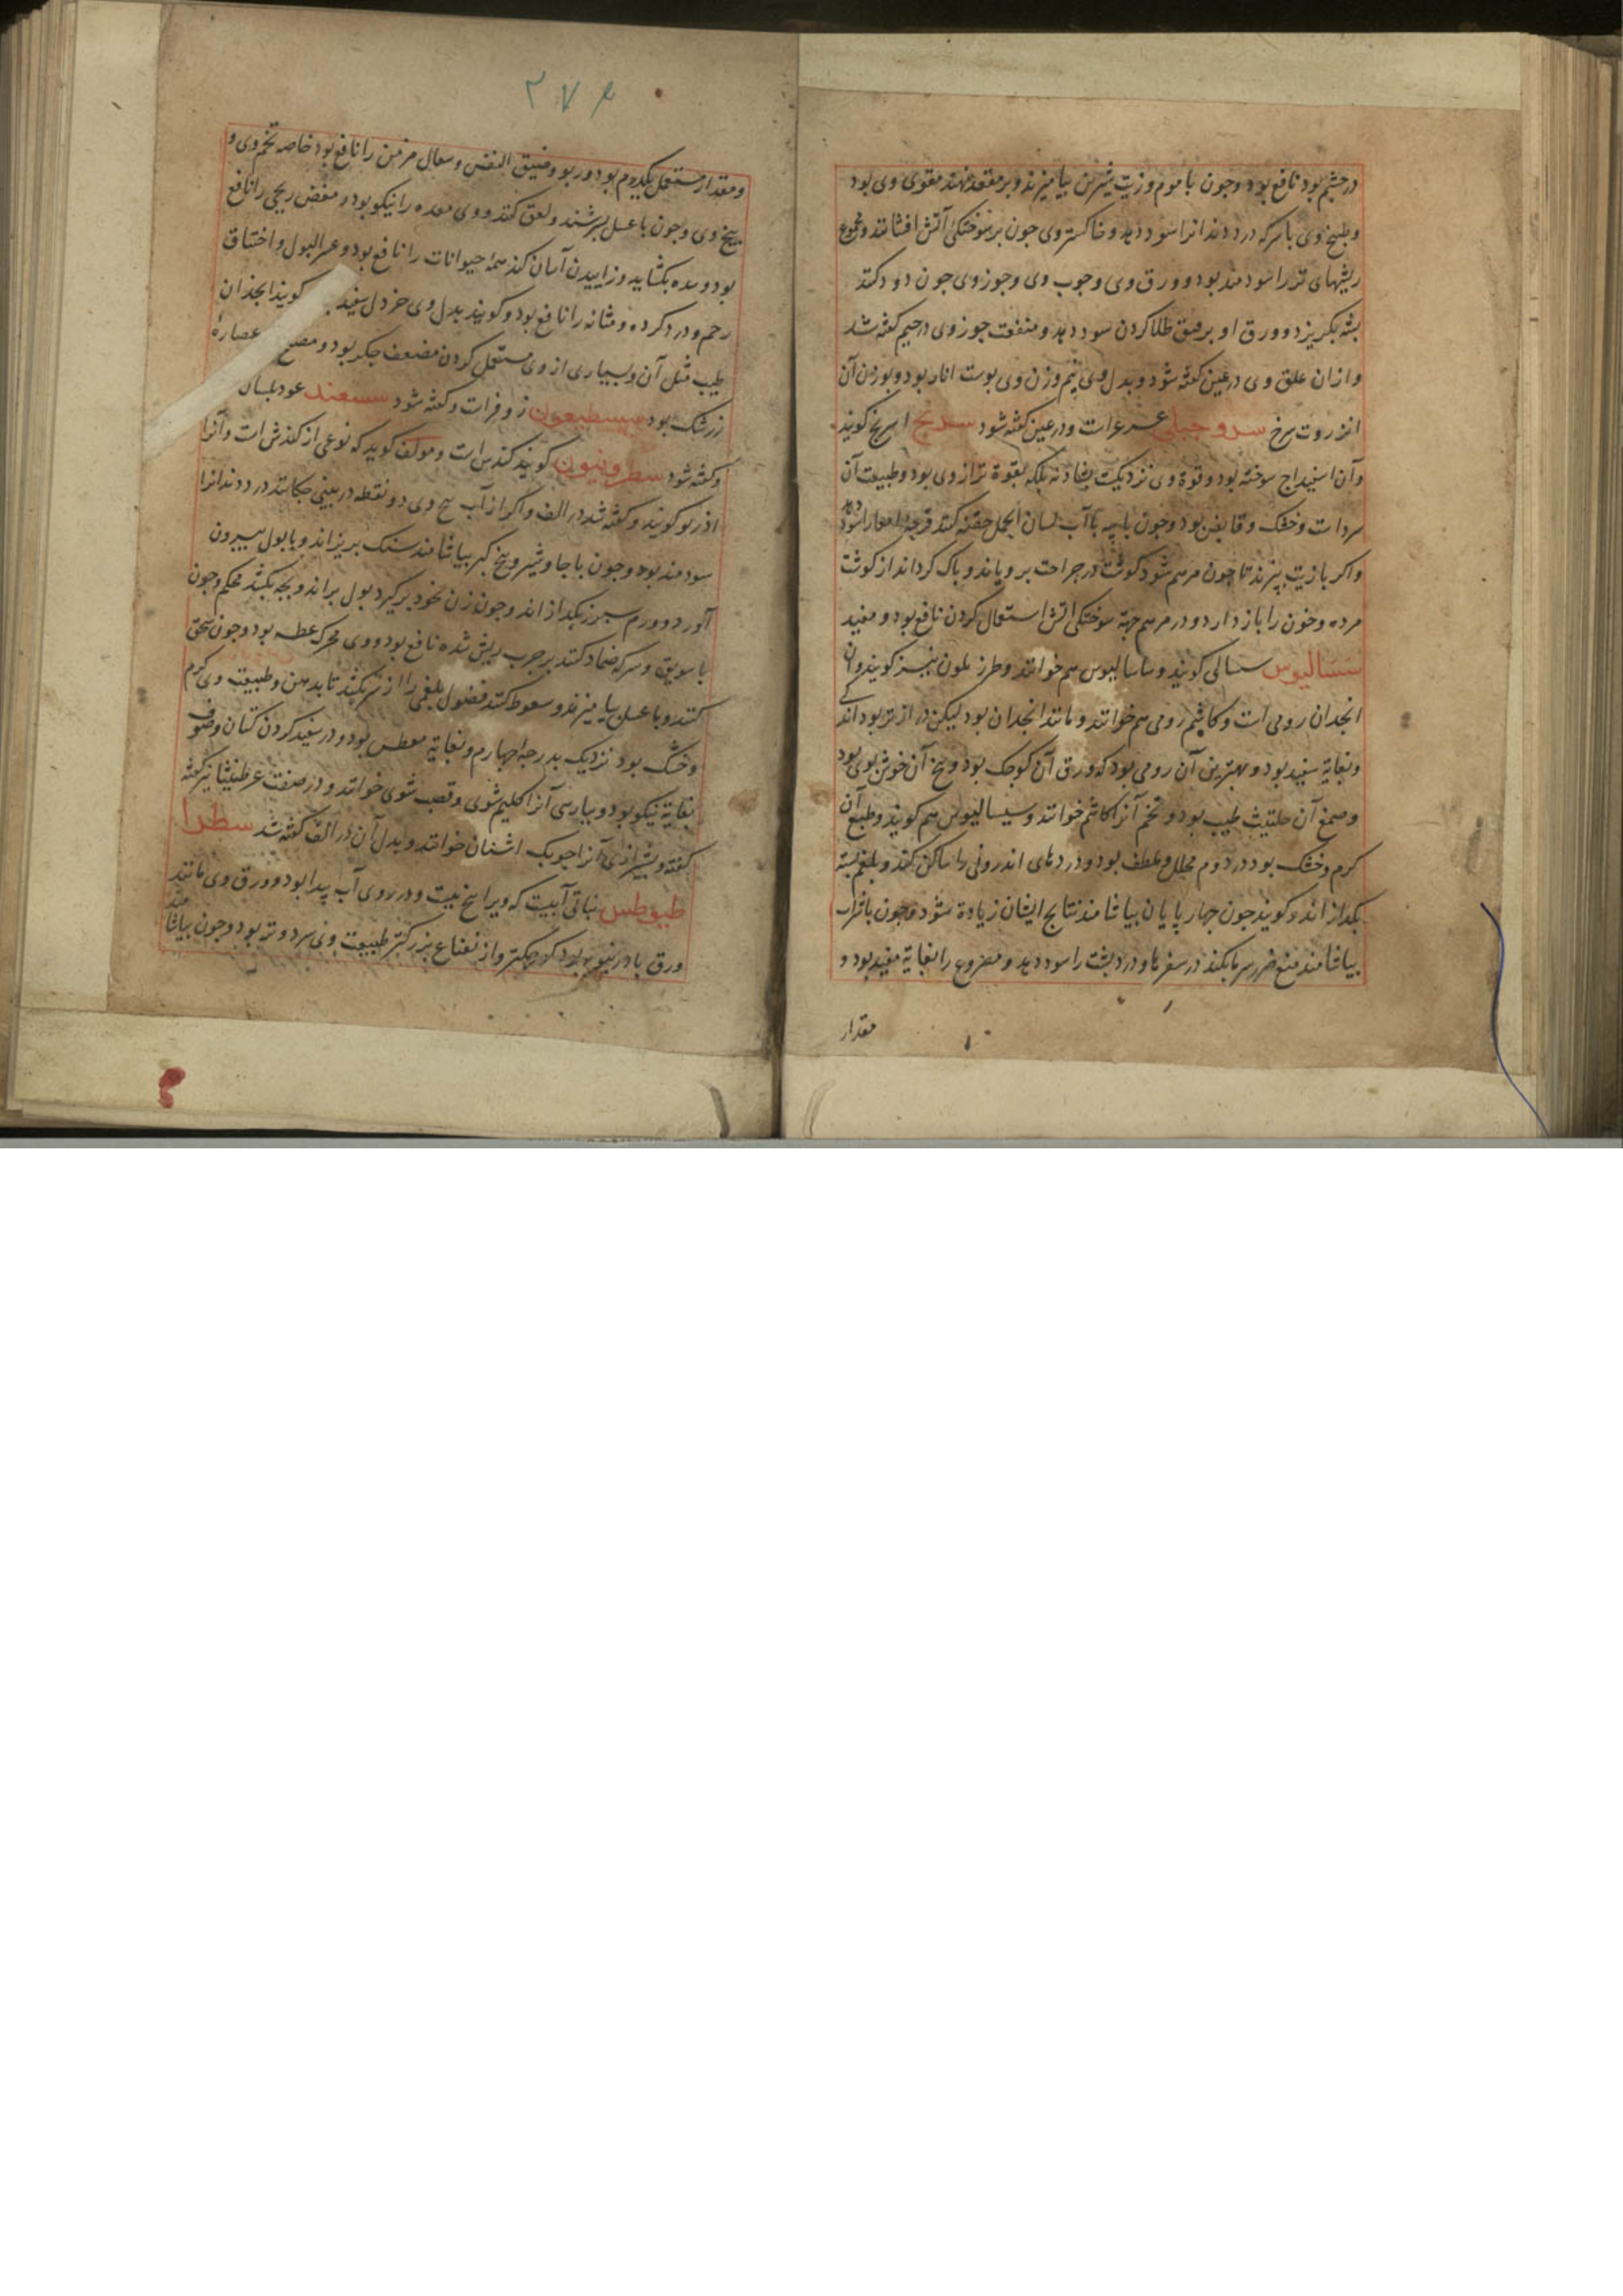 در چشم بود نافع بود و چون با موم و زیت شیرین بیامیزند و بر معده نهند مقوی وی بود
و طبیخ وی با سرکه درد دندانرا سود دهد و خاکستر وی چون بر سوختگی آتش افشانند و مجموع
ریشهای تر را سودمند بود و ورق وی و چوب وی و جوز وی چون دود کنند
پشه بگریزد و ورق او بر بهق طلا کردن سود دهد و منفعت جوز وی در جیم گفته شد
و ازان علق وی در عین گفته شود و بدل وی نیم وزن وی پوست انار بود و بوزن آن
انزروت سرخ سرو جبلی عرعر است و در عین گفته شود سریج اسرنج گویند
و آن اسفیداج سوخته بود و قوة وی نزدیکست بشادنه بلکه بقوة تر از وی بود و طبیعت آن
سرد است و خشک و قابض بود و چون با پیه با آب لسان الحمل حقنه کنند قرحه امعا را سود دهد
و اکر با زیت بپزند تا چون مرهم شود گوشت در جراحت برویاند و پاک کرداند از کوشت
مرده و خون را باز دارد و در مرهم جهة سوختکی آتش استعمال کردن نافع بود و مفید
سسالیوس سسالی کویند و ساسالیوس هم خوانند و طرز یلون نیز کویند و آن
انجدان رومی است و کاشم رومی هم خوانند و مانند انجدان بود لیکن دراز تر بود اندکی
و بغایة سفید بود و بهترین آن رومی بود که ورق آن کوچک بود و بیخ آن خوش بوی بود
و صمغ آن حلتیث طیب بود و تخم آنرا کاشم خوانند و سیسالیوس هم کویند و طبع آن
کرم و خشک بود در دوم محلل و ملطف بود و دردهای اندرونی را ساکن کند و بلغم بسته
بکدازاند و کویند چون چهارپایان بیاشامند نتایج ایشان زیادة شود و چون با شراب
بیاشامند منع ضرر سرما بکند در سفرها و درد پشت را سود دهد و مصروع را بغایة مفید بود و
مقدار
۲۷۶
و مقدار مستعمل یکدرم بود و ربو و ضیق النفس و سعال مزمن را نافع بود خاصه تخم وی و
بیخ وی و چون با عسل بسرشند و لعق کنند و وی معده را نیکو بود و مغص ریحی را نافع
بود و سده بکشاید و زاییدن آسان کند همهٔ حیوانات را نافع بود و عسر البول و اختناق
رحم و درد کرده و مثانه را نافع بود و کویند بدل وی خردل سفید کویند انجدان
طیب مثل آن و بسیاری از وی مستعمل کردن مضعف جکر بود و مصلح عصارهٔ
زرشک بود سیسطیعون زوفراست و کفته شود سسعند عود بلسان
و کفته شود سطرونیون کویند کندس است و مولف کوید که نوعی از کندش است و آنرا
اذربو کویند و کفته شد در الف و اکر از آب بیخ وی دو نقطه در بینی چکانند درد دندانرا
سودمند بود و چون با جاوشیر و بیخ کبر بیاشامند سنک بریزاند و با بول بیرون
آورد و ورم سپرز بکدازاند و چون زن بخود برکیرد بول براند و بچه بکشد محکم و چون
با سویق و سرکه ضماد کنند بر جرب ریش شده نافع بود و وی محرک عطسه بود و چون سحق
کنند و با عسل بیامیزند و سعوط کنند فضول بلغمی را از سر بکشد تا بدهن و طبیعت وی کرم
و خشک بود نزدیک بدرجهٔ چهارم و بغایة معطس بود و در سفید کردن کتان و صوف
بغایة نیکو بود و بپارسی آنرا کلیم شوی و قصب شوی خوانند و در صفت عرطنیثا نیز کفته
کفته و شیرازی آنرا چوبک اشنان خوانند و بدل آن در الف کفته شد سطرا
طیوطس نباتی آبیست که ویرا بیخ نیست و در روی آب پیدا بود و ورق وی مانند
ورق بادرنبویه بود کوچکتر و از نعناع بزرکتر طبیعت وی سرد و تر بود و چون بیاشامند